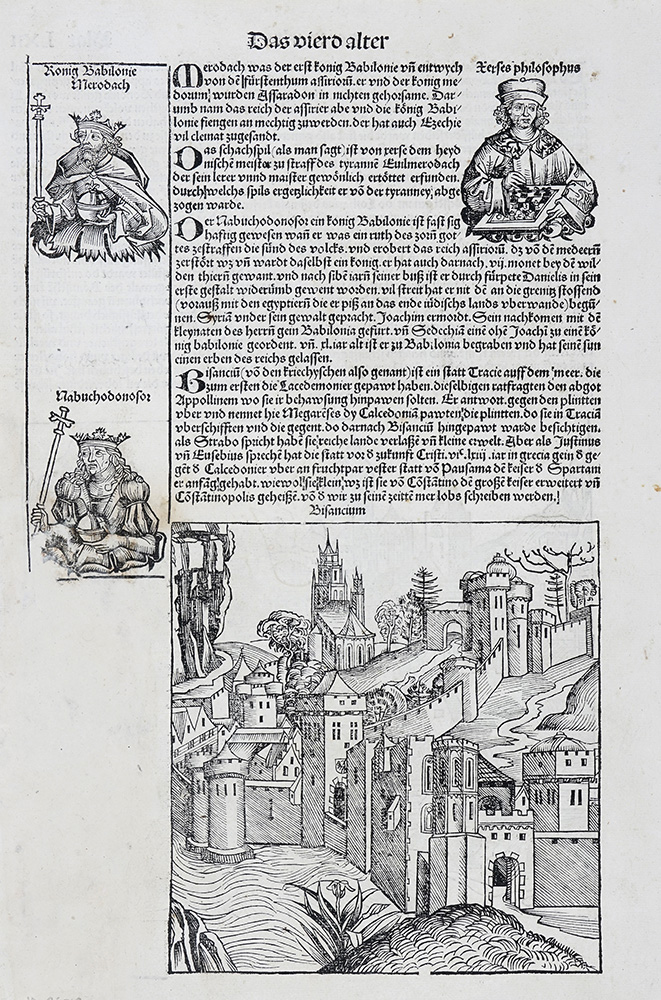 Das vierd alter
König Babilonie
Merodach
Merodach was der erst konig Babilonie vñ entwych
von dẽ fürstenthum assirioꝛũ. er vnd der konig me
doꝛum wurden Assaradon in nichten gehoꝛsame. Dar-
umb nam das reich der assirier abe vnd die könig Babi-
lonie fiengen an mechtig zuwerden. der hat auch Ezechie
vil cleinat zugesandt.
Xerses philosophus
Das schachspil (als man sagt) ist von xerse dem heyd
nischẽ meister zu straff des tyrannẽ Euilmerodach
der sein lerer vnnd maister gewönlich ertöttet erfunden.
durch welchs spils ergetzlichkeit er võ der tyranney abge
zogen warde.
Der Nabuchodonosoꝛ ein konig Babilonie ist fast sig
haftig gewesen wañ er was ein ruth des zoꝛñ got
tes zestraffen die sünd des volcks. vnd erobert das reich assirioꝛũ. dz võ dẽ medeerñ
zerstöꝛt wz vñ wardt daselbst ein konig. er hat auch darnach. vij. monet bey dẽ wil-
den thierñ gewant. vnd nach sibẽ iarñ seiner buß ist er durch fürpete Danielis in sein
erste gestalt widerũmb gewent woꝛden. vil streit hat er nit dẽ an die grenitz stossend
(voꝛauß mit den egyptierñ die er piß an das ende iüdischs lands vberwande) begũ-
nen. Syriã vnder sein gewalt gepꝛacht. Joachim ermoꝛdt. Sein nachkomen mit dẽ
kleynaten des herrñ gein Babilonia gefurt. vñ Sedechiã einẽ ohẽ Joachĩ zu einẽ kõ-
nig babilonie geoꝛdent. vñ. xl. iar alt ist er zu Babilonia begraben vnd hat seinẽ sun
einen erben des reichs gelassen.
Nabuchodonosoꝛ
Bisanciũ (võ den kriechyschen also genant) ist ein statt Tracie auff dem meer. die
zum ersten die Lacedemonier gepawt haben. dieselbigen ratfragten den abgot
Appollinem wo sie ir behawsung hinpawen solten. Er antwoꝛt. gegen den plintten
vber vnd nennet hie Megarẽses dy Calcedoniã pawten die plintten. do sie in Traciã
vberschifften vnd die gegent. do darnach Bisanciũ hingepawt warde besichtigen.
als Strabo spꝛicht habẽ sie reiche lande verlaßẽ vñ kleine erwelt. Aber als Justinus
vñ Eusebius spꝛechẽ hat die statt voꝛ d̕ zukunft Cristi. vjͨ. lxiij. iar in grecia gein d̕ ge-
gẽt d̕ Calcedonier vber an fruchtpar vester statt võ Pausama dẽ keiser d̕ Spartani
er anfãg gehabt. wiewol sie klein wz ist sie võ Cõstãtino dẽ großẽ keiser erweitert vñ
Cõstãtinopolis geheißẽ. võ d̕ wir zu seinẽ zeittẽ mer lobs schreiben werden.
Bisancium